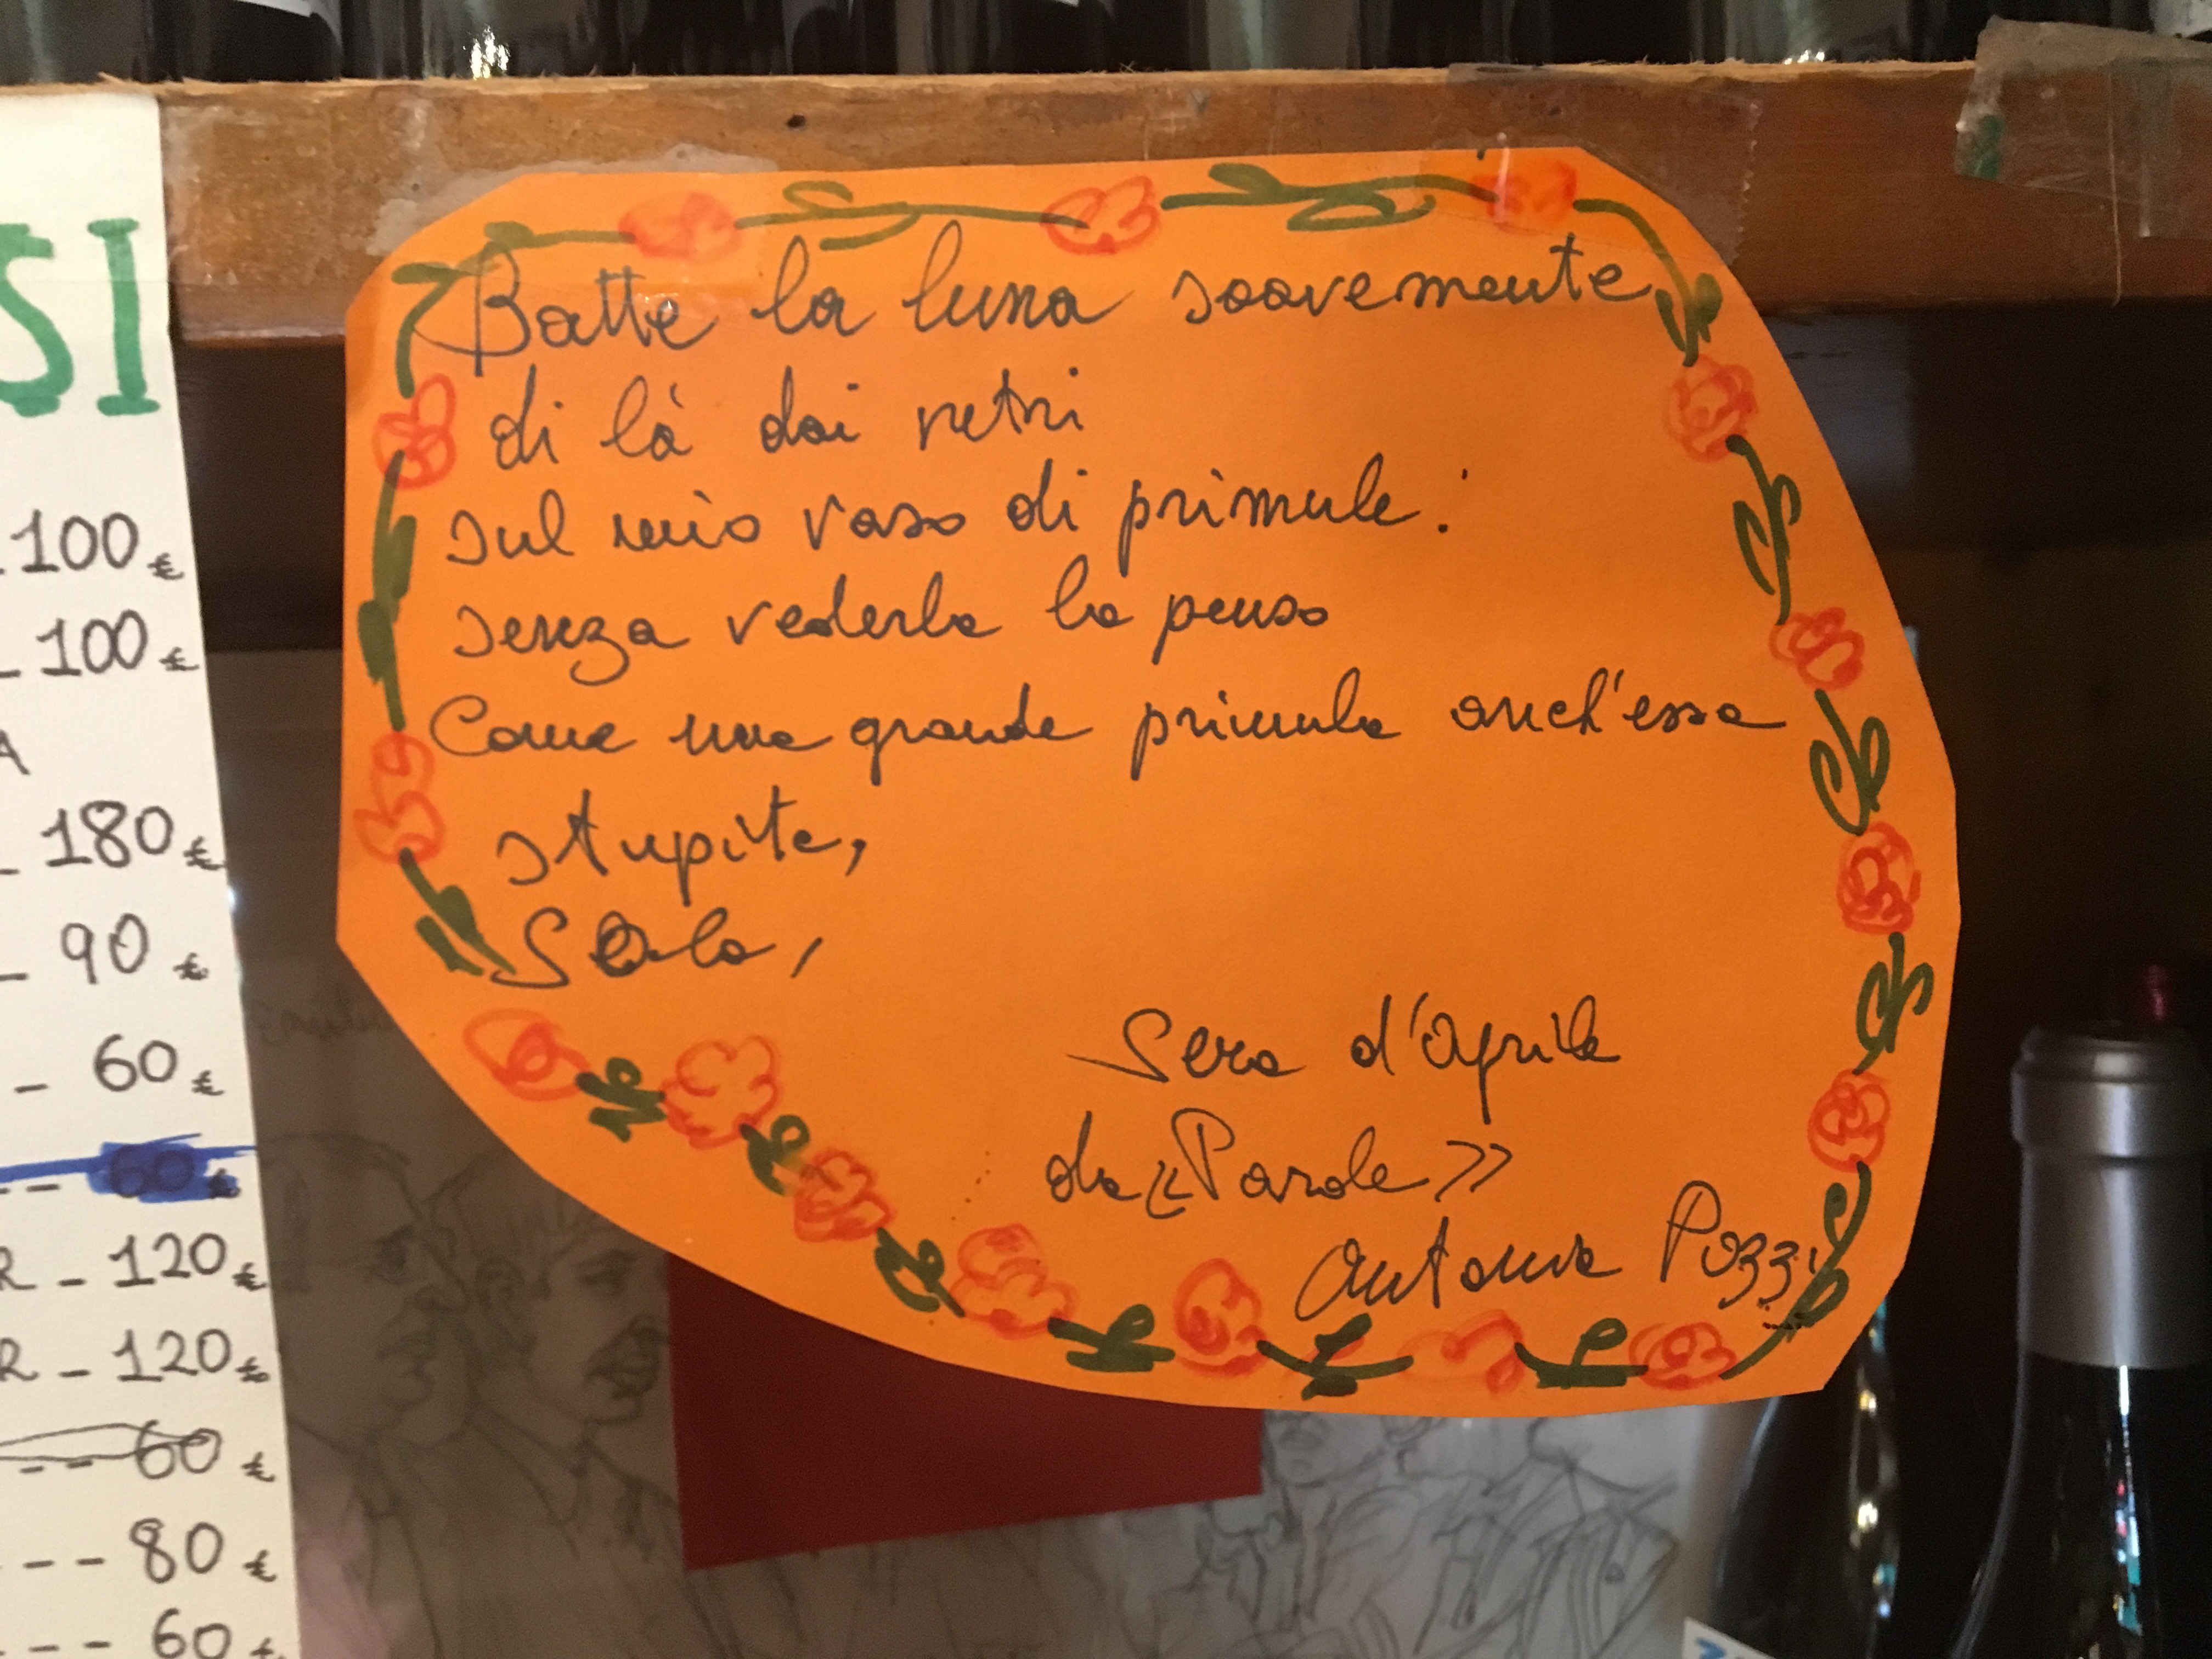 SI
100 €
100 €
A
180 €
90 €
60 €
60 €
R - 120 €
R - 120 €
60 €
80 €
60 €
Batte la luna soavemente
di là dai vetri
sul mio vaso di primule:
senza vederla la penso
Come una grande primula anch'essa
stupita,
Sola,
Sera d'aprile
da «Parole»
Antonia Pozzi